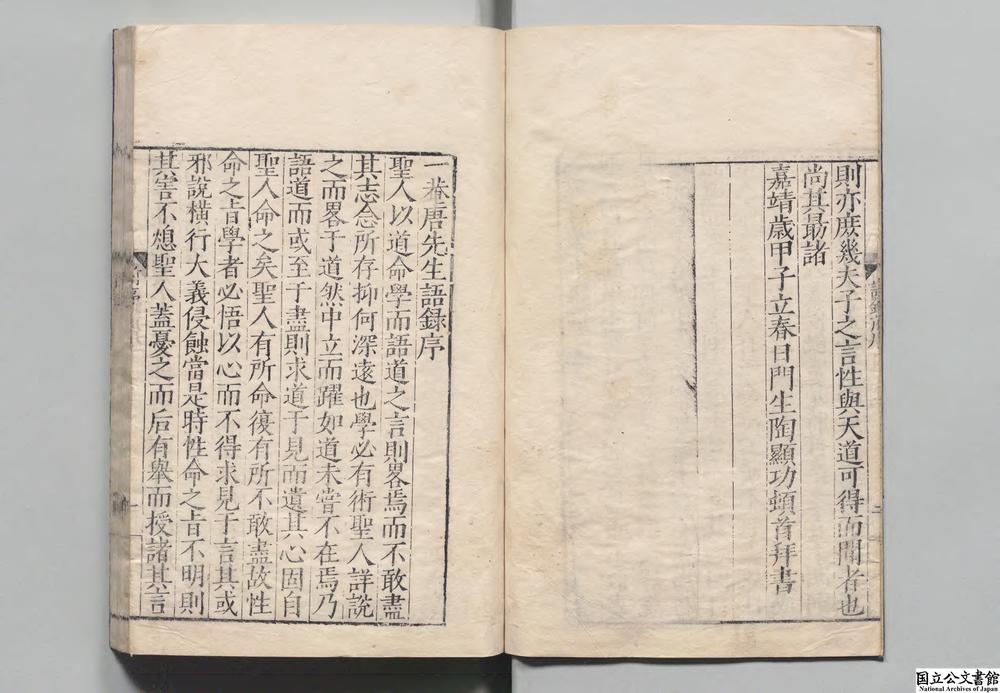 則亦庻幾夫子之言性與天道可得而聞者也
尚其勗諸
嘉靖歳甲子立春日門生陶顯功頓首拜書
一菴唐先生語録序
聖人以道命學而語道之言則畧焉而不敢盡
其志念所存抑何深遠也學必有術聖人詳說
之而畧于道然中立而躍如道未甞不在焉乃
語道而或至于盡則求道于見而遺其心固自
聖人命之矣聖人有所命復有所不敢盡故性
命之㫖學者必悟以心而不得求見于言其或
邪說橫行大義侵蝕當是時性命之㫖不明則
其害不熄聖人蓋憂之而后有舉而授諸其言
国立公文書館
National Archives of Japan